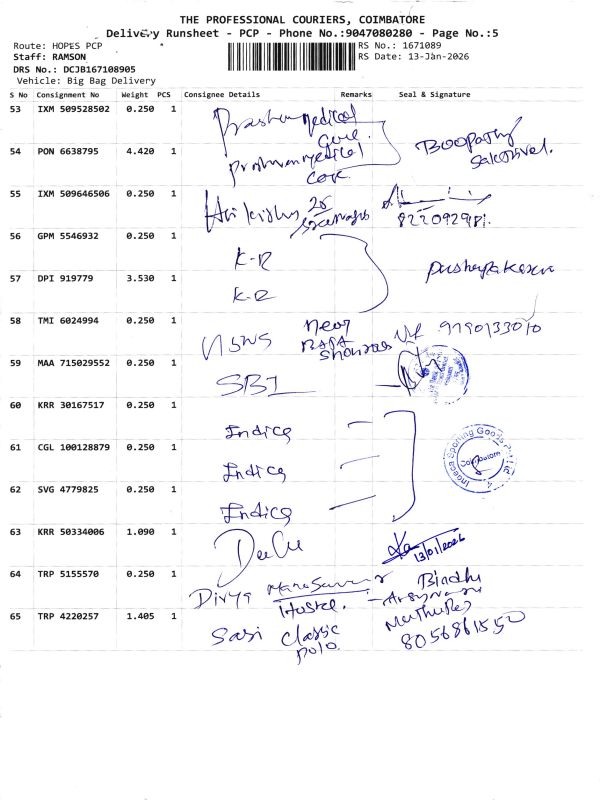 THE PROFESSIONAL COURIERS, COIMBATORE
Delivery Runsheet - PCP - Phone No.:9047080280 - Page No.:5
Route: HOPES PCP
RS No.: 1671089
Staff: RAMSON
RS Date: 13-Jan-2026
DRS No.: DCJB167108905
Vehicle: Big Bag Delivery
S No Consignment No Weight PCS Consignee Details Remarks Seal & Signature
53 IXM 509528502 0.250 1 medical
54 PON 6638795 4.420 1 medical Boopathy
55 IXM 509646506 0.250 1
56 GPM 5546932 0.250 1 K-R
57 DPI 919779 3.530 1 K-R
58 TMI 6024994 0.250 1 near
59 MAA 715029552 0.250 1 SBI
60 KRR 30167517 0.250 1 Indica
61 CGL 100128879 0.250 1 Indica
62 SVG 4779825 0.250 1 Indica
63 KRR 50334006 1.090 1 13/01/2026
64 TRP 5155570 0.250 1 Divya Bindhu
65 TRP 4220257 1.405 1 Sasi Classic
Polo. 8056861550